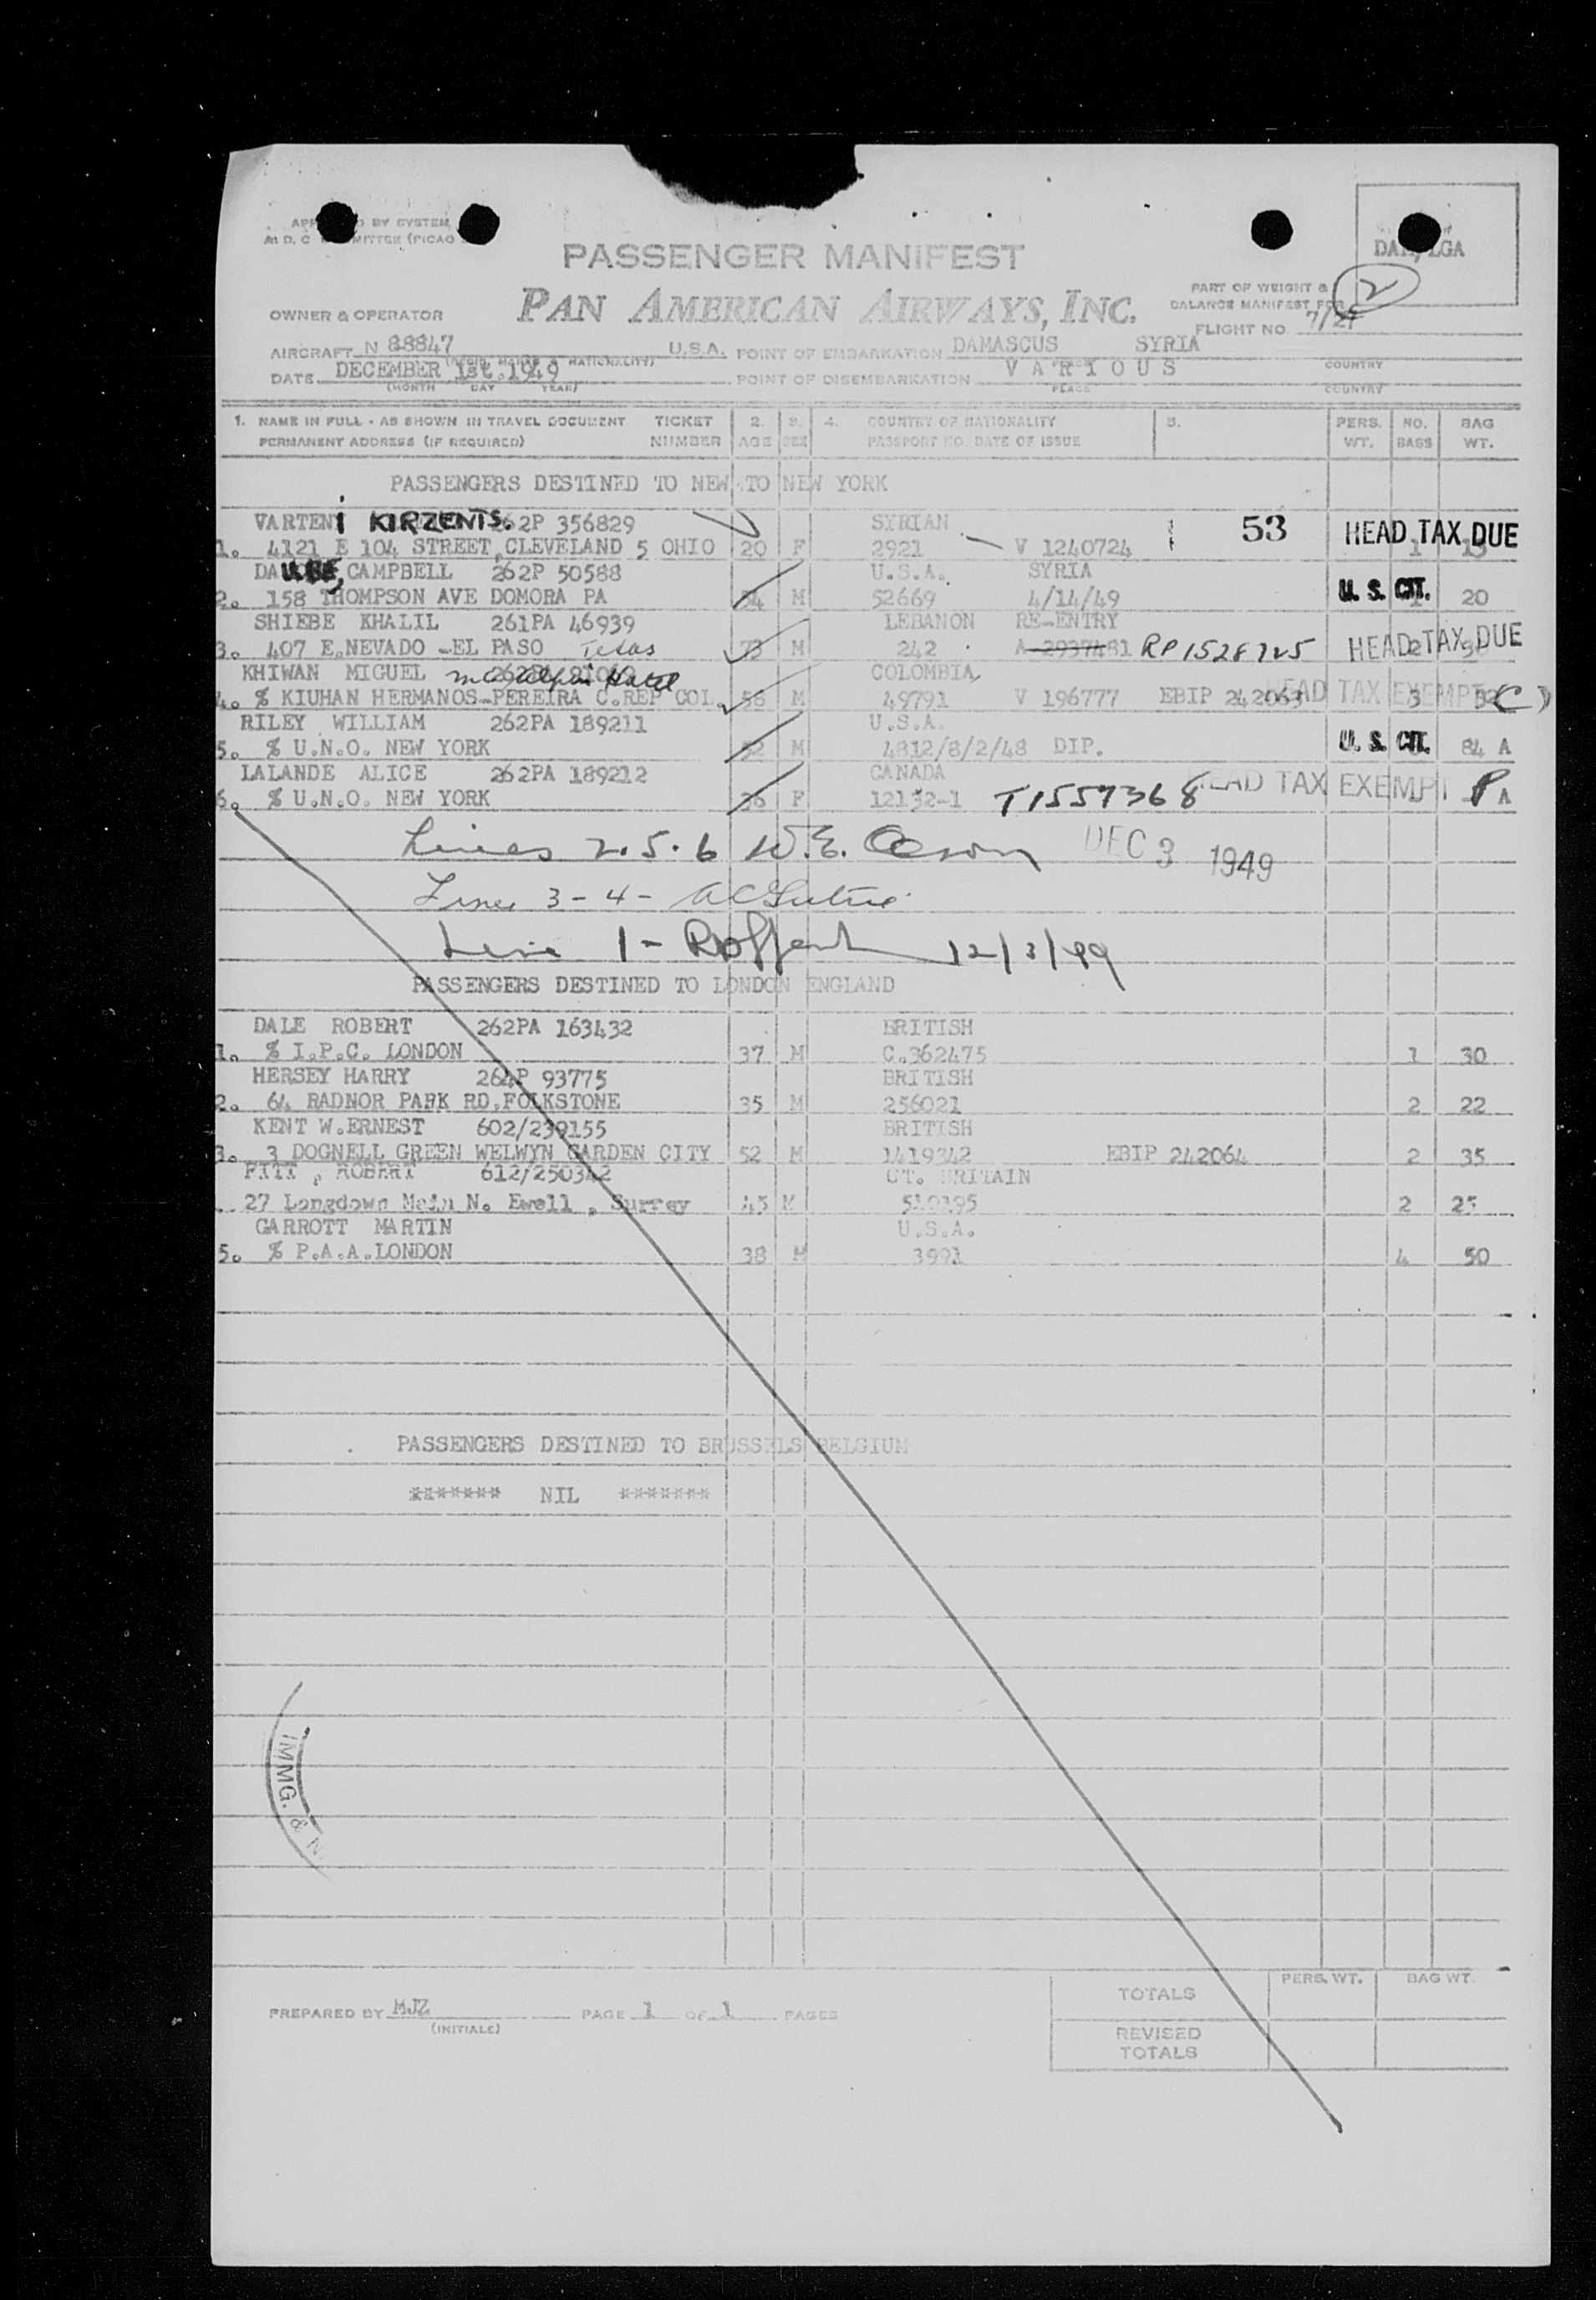 BY SYSTEM
DAM/LGA
PASSENGER MANIFEST
PART OF WEIGHT &
BALANCE MANIFEST FOR
2
OWNER & OPERATOR
PAN AMERICAN AIRWAYS, INC.
FLIGHT NO.
AIRCRAFT N 88847 U.S.A. POINT OF EMBARKATION DAMASCUS SYRIA
COUNTRY
DATE DECEMBER 1st. 1949 POINT OF DISEMBARKATION VARIOUS
(MONTH DAY YEAR) PLACE COUNTRY
1. NAME IN FULL - AS SHOWN IN TRAVEL DOCUMENT TICKET 2. 3. 4. COUNTRY OF NATIONALITY 5. PERS. NO. BAG
PERMANENT ADDRESS (IF REQUIRED) NUMBER AGE SEX PASSPORT NO. DATE OF ISSUE WT. BAGS WT.
PASSENGERS DESTINED TO NEW TO NEW YORK
VARTENI KIRZENTS. 262P 356829 SYRIAN 53 HEAD TAX DUE
1. 4121 E 104 STREET, CLEVELAND 5 OHIO 20 F 2921 V 1240724 1
CAMPBELL 262P 50588 U.S.A. SYRIA
2. 158 THOMPSON AVE DOMORA PA M 52669 4/14/49 U. S. CIT. 20
SHIEBE KHALIL 261PA 46939 LEBANON RE-ENTRY
3. 407 E.NEVADO -EL PASO Texas 73 M 242 RP1528725 HEAD TAX DUE
KHIWAN MIGUEL Hotel COLOMBIA
4. % KIUHAN HERMANOS-PEREIRA C.REP COL. 56 M 49791 V 196777 EBIP 242063 HEAD TAX EXEMPT 3
RILEY WILLIAM 262PA 189211 U.S.A.
5. % U.N.O. NEW YORK 52 M 4812/8/2/48 DIP. U. S. CIT. 84 A
LALANDE ALICE 262PA 189212 CANADA
6. % U.N.O. NEW YORK 36 F 12132-1 T1557368 HEAD TAX EXEMPT A
Lines 2.5.6 W.E. DEC 3 1949
Lines 3-4-
Line 1- 12/3/49
PASSENGERS DESTINED TO LONDON ENGLAND
DALE ROBERT 262PA 163432 BRITISH
1. % I.P.C. LONDON 37 M C.362475 1 30
HERSEY HARRY 264P 93775 BRITISH
2. 64 RADNOR PARK RD,FOLKSTONE 35 M 256021 2 22
KENT W.ERNEST 602/239155 BRITISH
3. 3 DOGNELL GREEN WELWYN GARDEN CITY 52 M 1419342 EBIP 242064 2 35
ROBERT 612/250342 GT. BRITAIN
27 Longdown Main N. Ewell , Surrey 45 M 2 25
GARROTT MARTIN U.S.A.
5. % P.A.A.LONDON 38 M 3991 4 50
PASSENGERS DESTINED TO BRUSSELS BELGIUM
******* NIL *******
IMMG. & N
PREPARED BY MJZ PAGE 1 OF 1 PAGES
(INITIALS)
PERS. WT. BAG WT.
TOTALS
REVISED
TOTALS